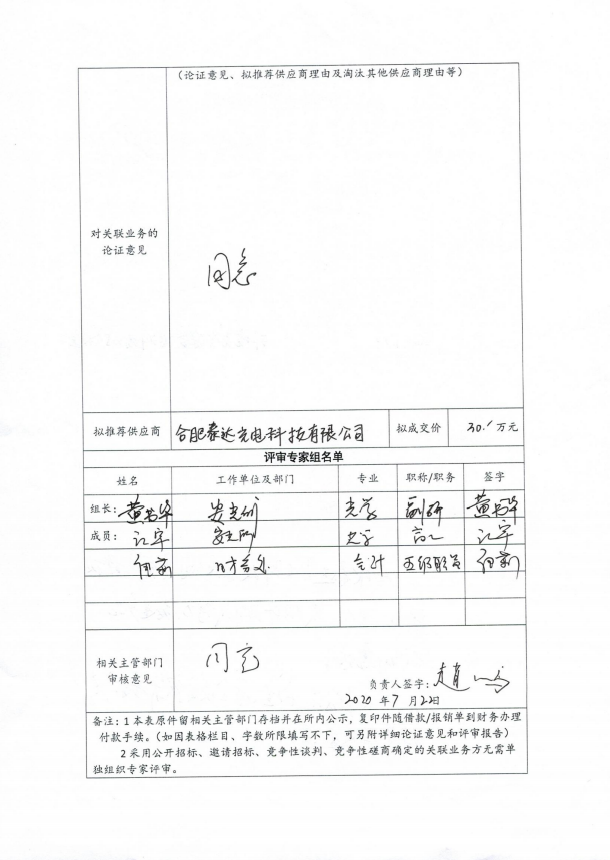 （论证意见、拟推荐供应商理由及淘汰其他供应商理由等）
对关联业务的
论证意见
同意
拟推荐供应商 合肥泰达光电科技有限公司 拟成交价 30.1 万元
评审专家组名单
姓名 工作单位及部门 专业 职称/职务 签字
组长： 安光所 光学 副研
成员： 江宇 安光所 光学 高工 江宇
财务处 会计 五级职员
相关主管部门
审核意见
同意
负责人签字：
2020 年 7 月 22日
备注：1 本表原件留相关主管部门存档并在所内公示，复印件随借款/报销单到财务办理
付款手续。（如因表格栏目、字数所限填写不下，可另附详细论证意见和评审报告）
2 采用公开招标、邀请招标、竞争性谈判、竞争性磋商确定的关联业务方无需单
独组织专家评审。